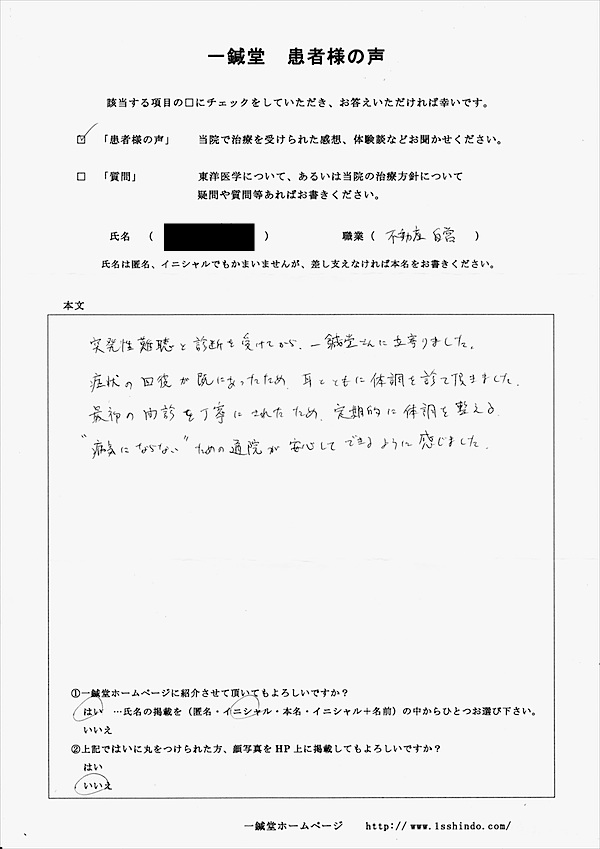 一鍼堂 患者様の声
該当する項目の□にチェックをしていただき、お答えいただければ幸いです。
☑ 「患者様の声」 当院で治療を受けられた感想、体験談などお聞かせください。
□ 「質問」 東洋医学について、あるいは当院の治療方針について
疑問や質問等あればお書きください。
氏名 ( ) 職業( 不動産 自営 )
氏名は匿名、イニシャルでもかまいませんが、差し支えなければ本名をお書きください。
本文
突発性難聴と診断を受けてから、一鍼堂さんに立寄りました。
症状の回復が既にあったため、耳とともに体調を診て頂きました。
最初の問診を丁寧にされたため、定期的に体調を整える
"病気にならない"ための通院が安心してできるように感じました。
①一鍼堂ホームページに紹介させて頂いてもよろしいですか？
はい …氏名の掲載を（匿名・イニシャル・本名・イニシャル＋名前）の中からひとつお選び下さい。
いいえ
②上記ではいに丸をつけられた方、顔写真をHP上に掲載してもよろしいですか？
はい
いいえ
一鍼堂ホームページ http://www.1sshindo.com/